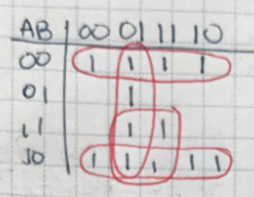 AB 00 01 11 10
00 1 1 1 1
01 1
11 1 1
10 1 1 1 1 1